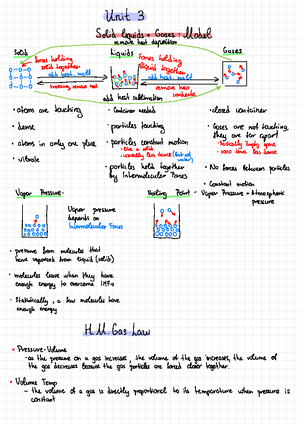 Unit 3
Solid liquids + Gases : Model
remove heat deposition
Solid
Liquids
Gases
Forces holding
solid together
add heat, melt
freezing remove heat
Forces holding
liquid together
add heat, melt
remove heat
condensate
add heat sublimation
• atom are touching
• dense
• atoms in only one place
• vibrate
• Container needed
• particles touching
• particles constant motion
- like a solid
- usually less dense (but not water)
• particles held together
by Intermolecular Forces
• closed container
• Gases are not touching,
they are far apart
- Basically Empty space
- 1000 times less dense
• No forces between particles
• Constant motion
Vapor Pressure
Vapor pressure
depends on
Intermolecular Forces
Boiling Point - Vapor Pressure = Atmospheric
pressure
• pressure from molecules that
have vaporated from liquid (solid)
• molecules leave when they have
enough energy to overcome IMFs
• Statistically, a few molecules have
enough energy
H.M Gas Law
• Pressure-Volume
- as the pressure on a gas increases, the volume of the gas increases, the volume of
the gas decreases because the gas particles are forced closer together.
• Volume Temp
- the volume of a gas is directly proportional to its temperature when pressure is
constant